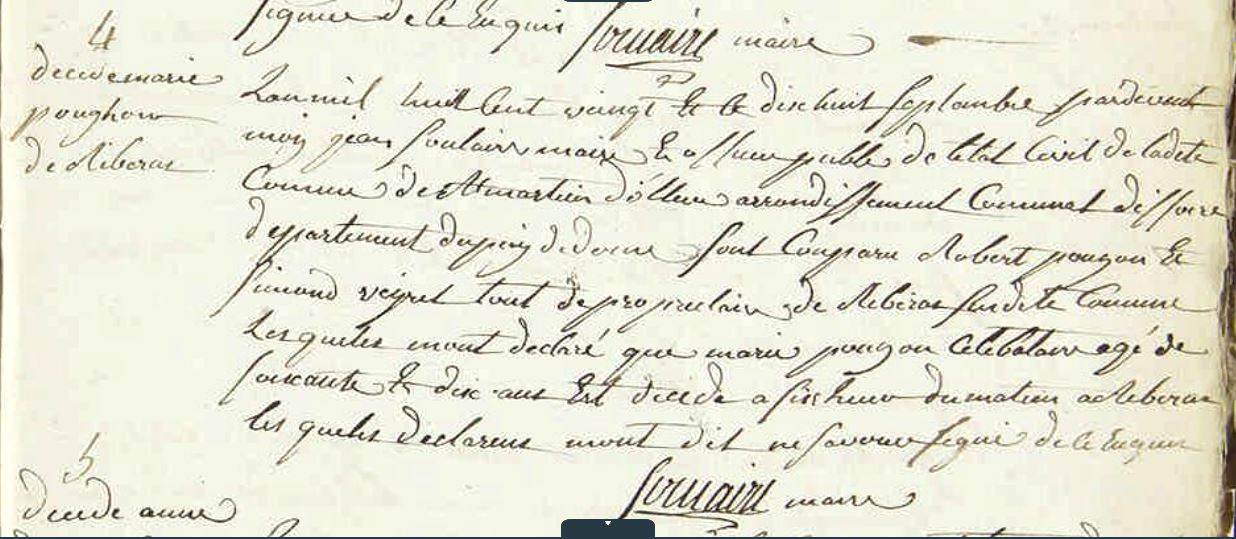 signer de ce Enquis Soulaire maire
4
decide marie
poughon
de Riberas
Lan mil huit Cent vaingt Et le dischuit Septambre pardevant
moy jean Soulaire maire Et officier public de letat Civil de ladite
Commune de St martin d'ollieres arrondissement Communal dissoire
departement dupuy de dome sont Comparu Robert pougon Et
Simond veyret tout de propriaitaire de Riberas susdite Commune
Lesqueles mont declaré que marie pougon Celebataire agé de
soixante Et dix ans Est decede a six heure du matien a Riberas
les queles declarens mont dit ne savoire signé de ce Enquis
Soulaire maire
5
decede anne